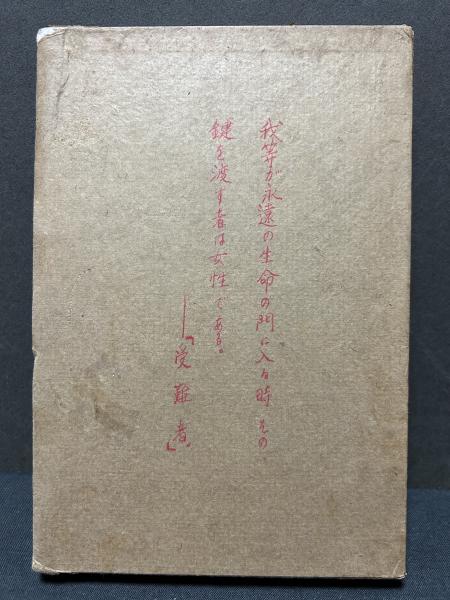 我等が永遠の生命の門に入る時、その
鍵を渡す者は女性である。
―「受難者」